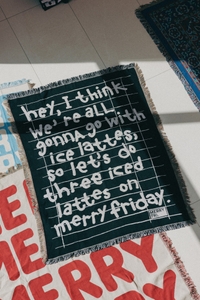 hey, I think
we're all
gonna go with
ice lattes,
so let's do
three iced
lattes on
merry friday.
MERRY
MERRY